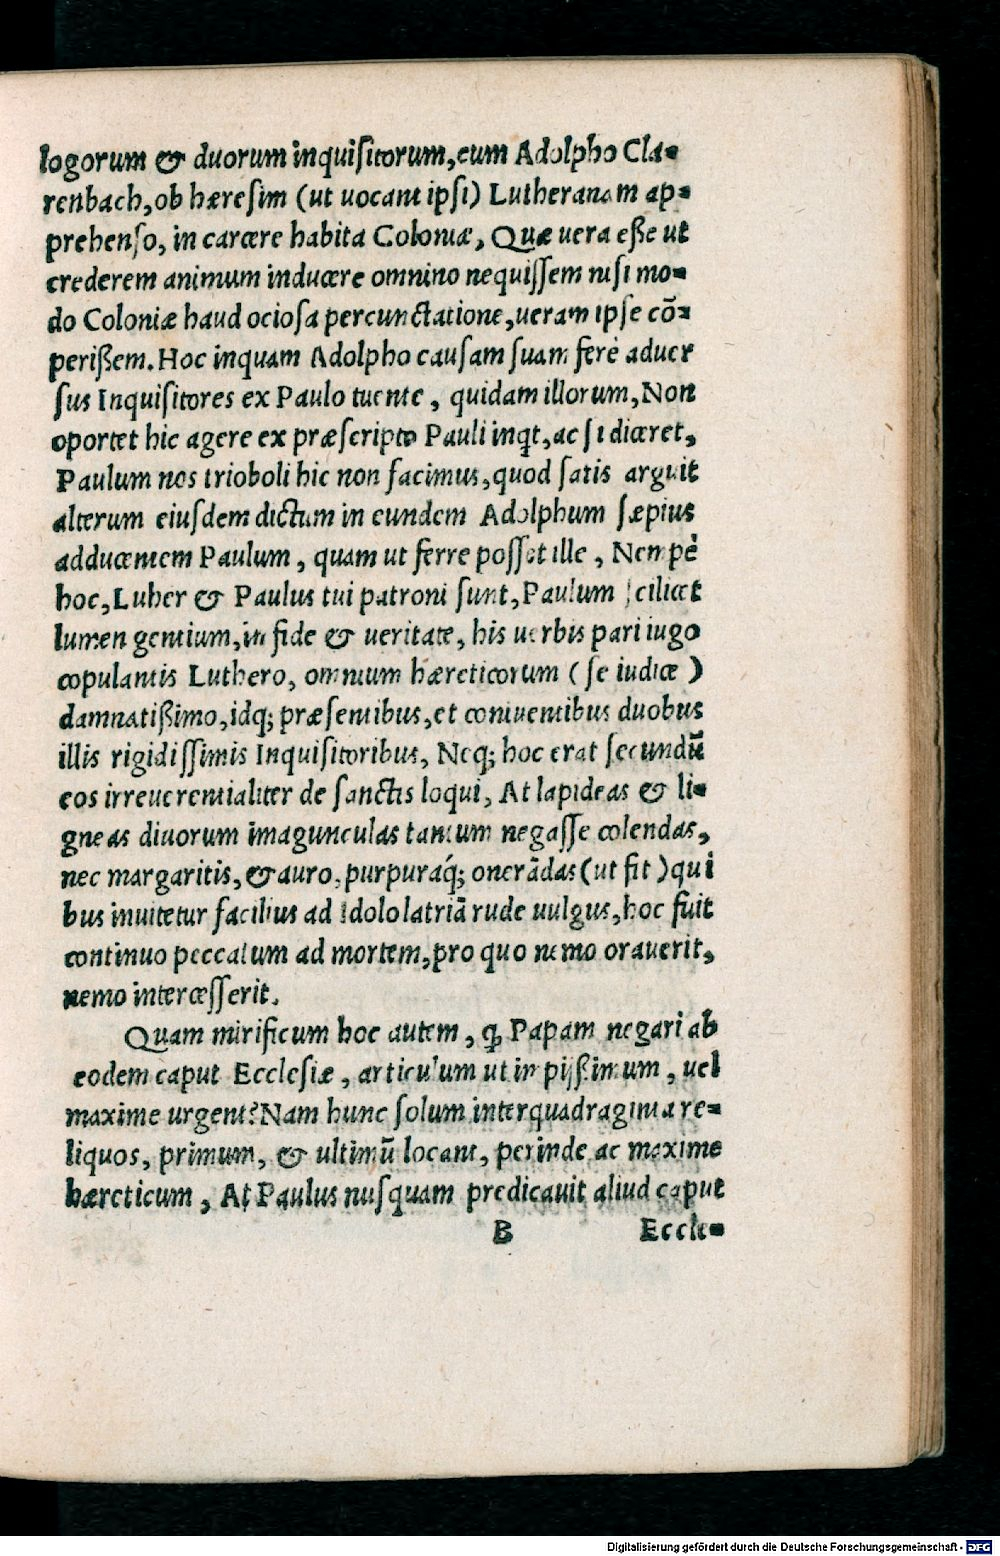 logorum & duorum inquisitorum, cum Adolpho Cla-
renbach, ob hæresim (ut uocant ipsi) Lutheranam ap-
prehenso, in carcere habita Coloniæ, Quæ uera eße ut
crederem animum inducere omnino nequissem nisi mo-
do Coloniæ haud ociosa percunctatione, ueram ipse cõ-
perißem. Hoc inquam Adolpho causam suam ferè aduer
sus Inquisitores ex Paulo tuente, quidam illorum, Non
oportet hic agere ex præscripto Pauli inqt, ac si diceret,
Paulum nos trioboli hic non facimus, quod satis arguit
alterum eiusdem dictum in eundem Adolphum sæpius
adducentem Paulum, quam ut ferre posset ille, Nempè
hoc, Luher & Paulus tui patroni sunt, Paulum scilicet
lumen gentium, in fide & ueritate, his uerbis pari iugo
copulantis Luthero, omnium hæreticorum (se iudice)
damnatißimo, idq; præsentibus, et coniuentibus duobus
illis rigidissimis Inquisitoribus, Neq; hoc erat secundũ
eos irreuerentialiter de sanctis loqui, At lapideas & li-
gneas diuorum imagunculas tantum negasse colendas,
nec margaritis, & auro, purpuraq́; onerãdas (ut fit) qui
bus inuitetur facilius ad Idololatriã rude uulgus, hoc fuit
continuo peccatum ad mortem, pro quo nemo orauerit,
nemo intercesserit.
Quam mirificum hoc autem, ꝙ Papam negari ab
eodem caput Ecclesiæ, articulum ut impijßimum, uel
maxime urgent? Nam hunc solum inter quadraginta re-
liquos, primum, & ultimũ locant, perinde ac maxime
hæreticum, At Paulus nusquam predicauit aliud caput
B Eccle-
Digitalisierung gefördert durch die Deutsche Forschungsgemeinschaft - DFG